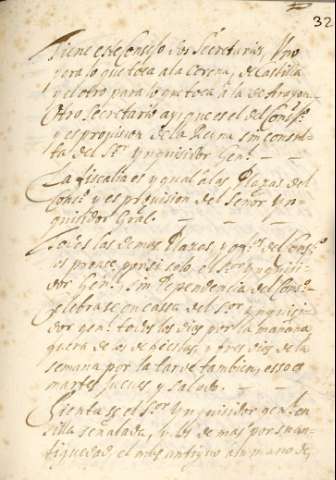 32
Tiene este Consejo dos Secretarios, Uno
para lo que toca a la Corona, de Castilla
y el otro para lo que toca a la de Aragon
Otro Secretario ay que es el del Consº
y es provision de la Reyna sin consul-
ta del Sr Ynquisidor Genl.
La fiscalia es ygual a las Plazas del
Consº y es provision del Señor Yn-
quisidor Gral.
Todas las demas Plazas, y of.os del Consº
los provee por si solo el Sr Ynquisi-
dor Genl, sin dependencia del Consº
Celebrase en cassa del Sor Ynquisi-
dor genl todos los dias por la mañana
que no la de fiestas, y tres dias de la
semana por la tarde tambien, esso es
martes Jueves y Sabado.
Sientasse el Sor Ynquisidor genl en
silla señalada, y los demas por su an-
tiguedad el mas antiguo a la mano de